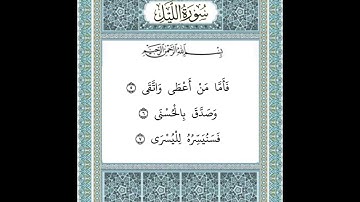 سُورَةُ اللَّيْلِ
بِسْمِ اللَّهِ الرَّحْمَنِ الرَّحِيمِ
فَأَمَّا مَنْ أَعْطَى وَاتَّقَى ٥
وَصَدَّقَ بِالْحُسْنَى ٦
فَسَنُيَسِّرُهُ لِلْيُسْرَى ٧